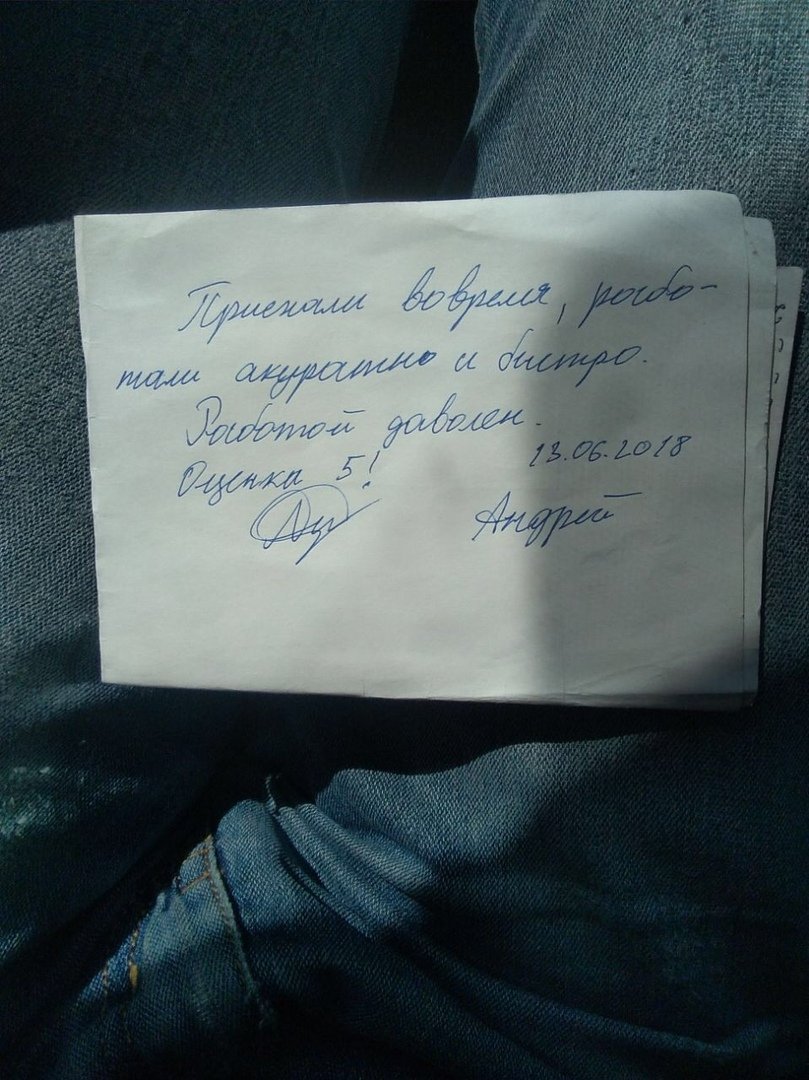 Приехали вовремя, рабо-
тали акуратно и быстро.
Работой даволен.
Оценка 5! 13.06.2018
Андрей